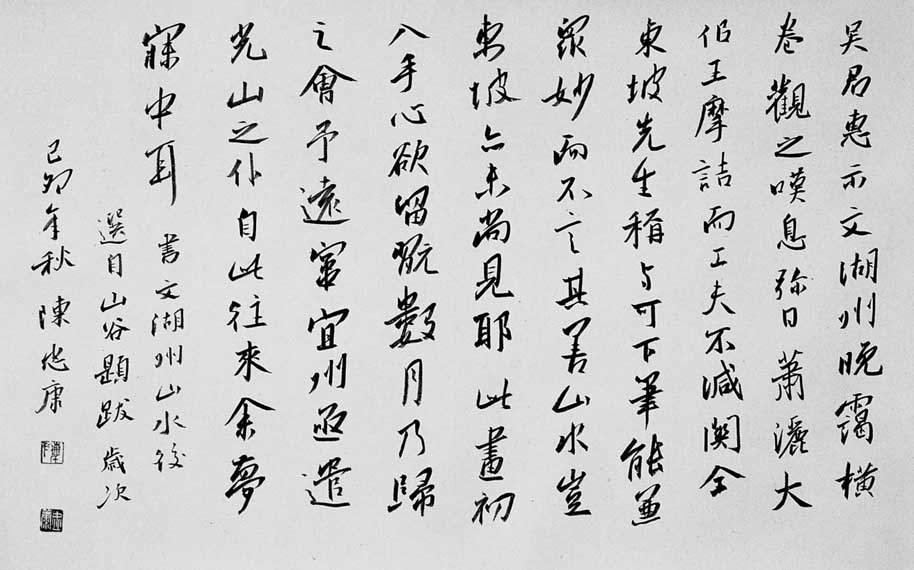 吴君惠示文湖州晚靄橫
卷觀之嘆息弥日蕭灑大
佀王摩詰而工夫不減関仝
東坡先生稱与可下筆能兼
眾妙而不言其善山水豈
東坡亦未嘗見耶此畫初
入手心欲留翫數月乃歸
之會予遠竄宜州亟遣
光山之仆自此往來余夢
寐中耳 書文湖州山水後
選自山谷題跋 歲次
己卯年秋 陳忠康